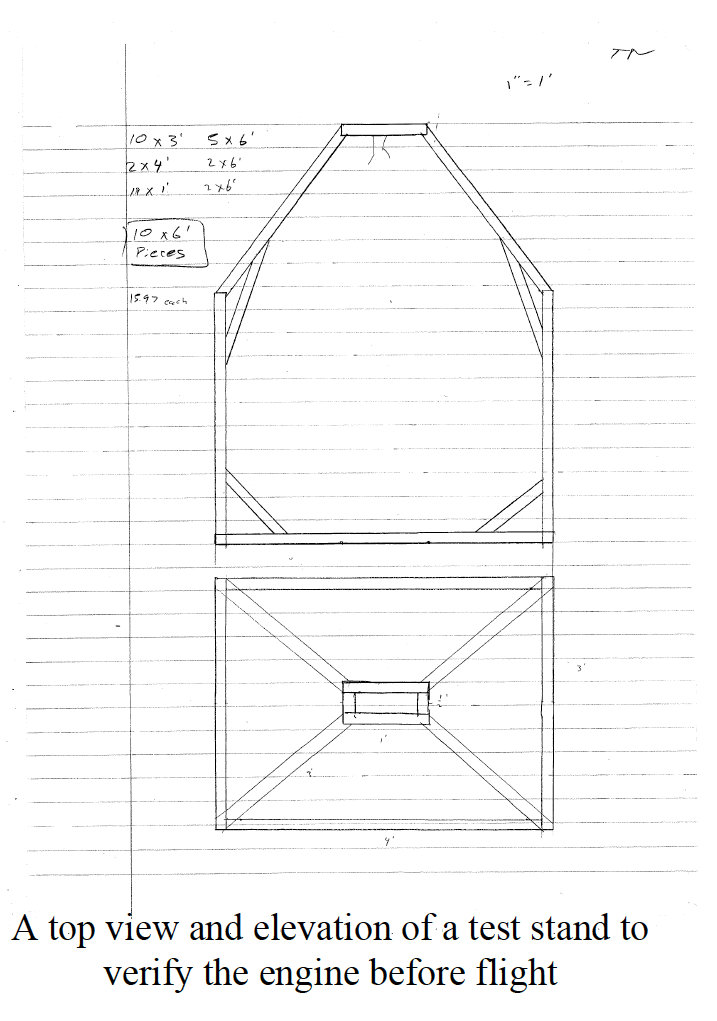 TN
1" = 1'
10 x 3' 5 x 6'
2 x 4' 2 x 6'
2 x 6'
10 x 6'
Pieces
15.97 each
3'
1'
4'
A top view and elevation of a test stand to
verify the engine before flight